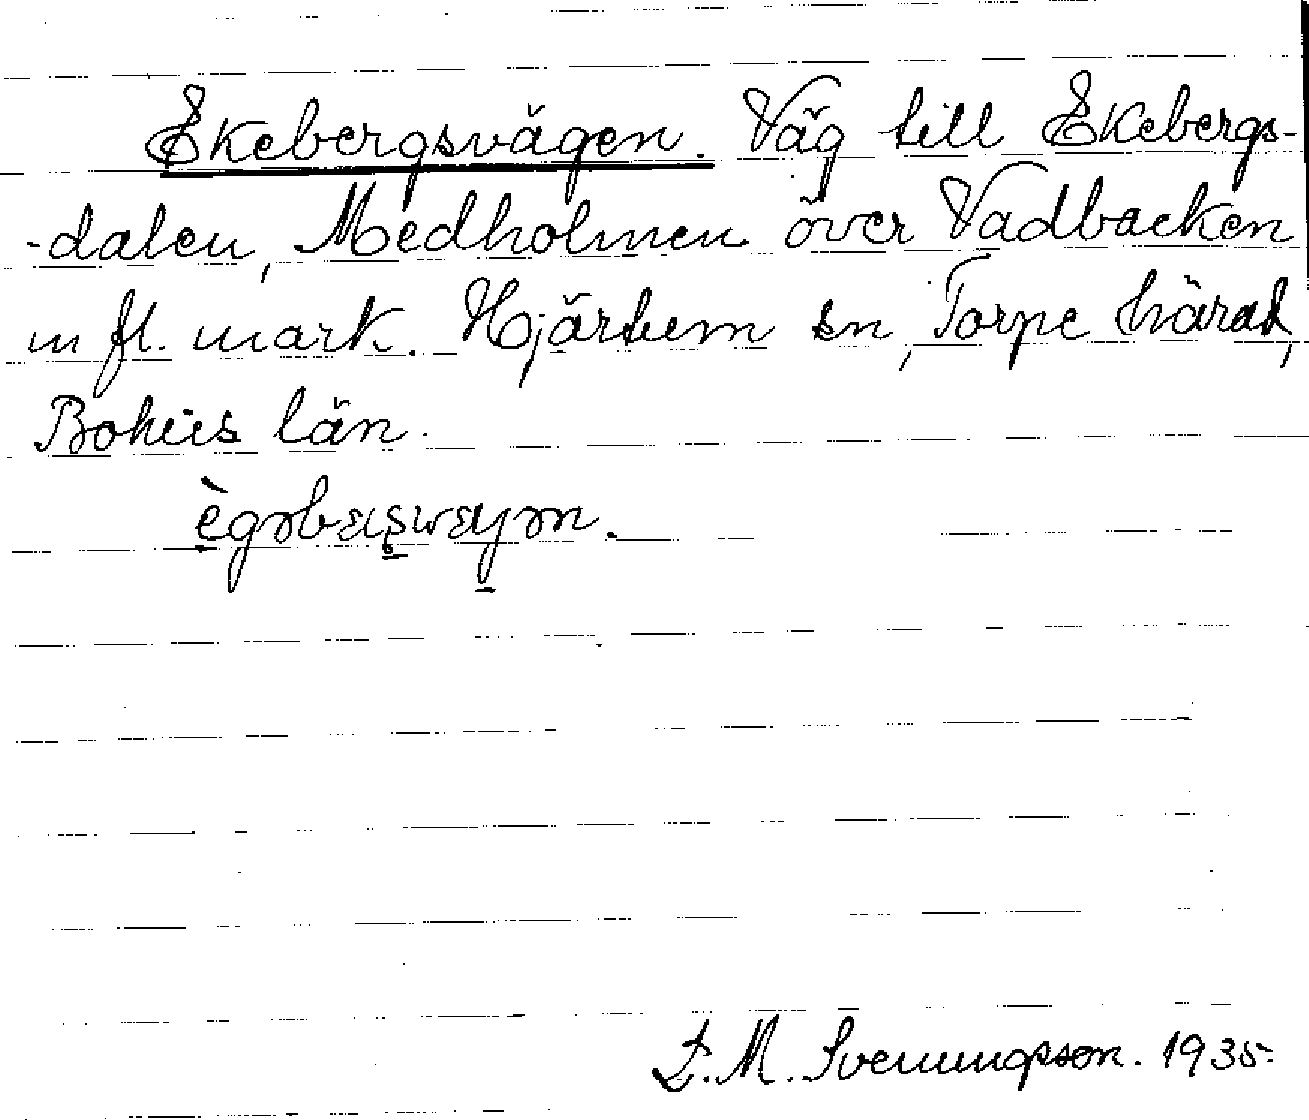 Ekebergsvägen. Väg till Ekebergs-
-dalen, Medholmen över Vadbacken
m fl. mark. Hjärtum sn, Torpe härad,
Bohus län.
M. Svenungsson. 1935.